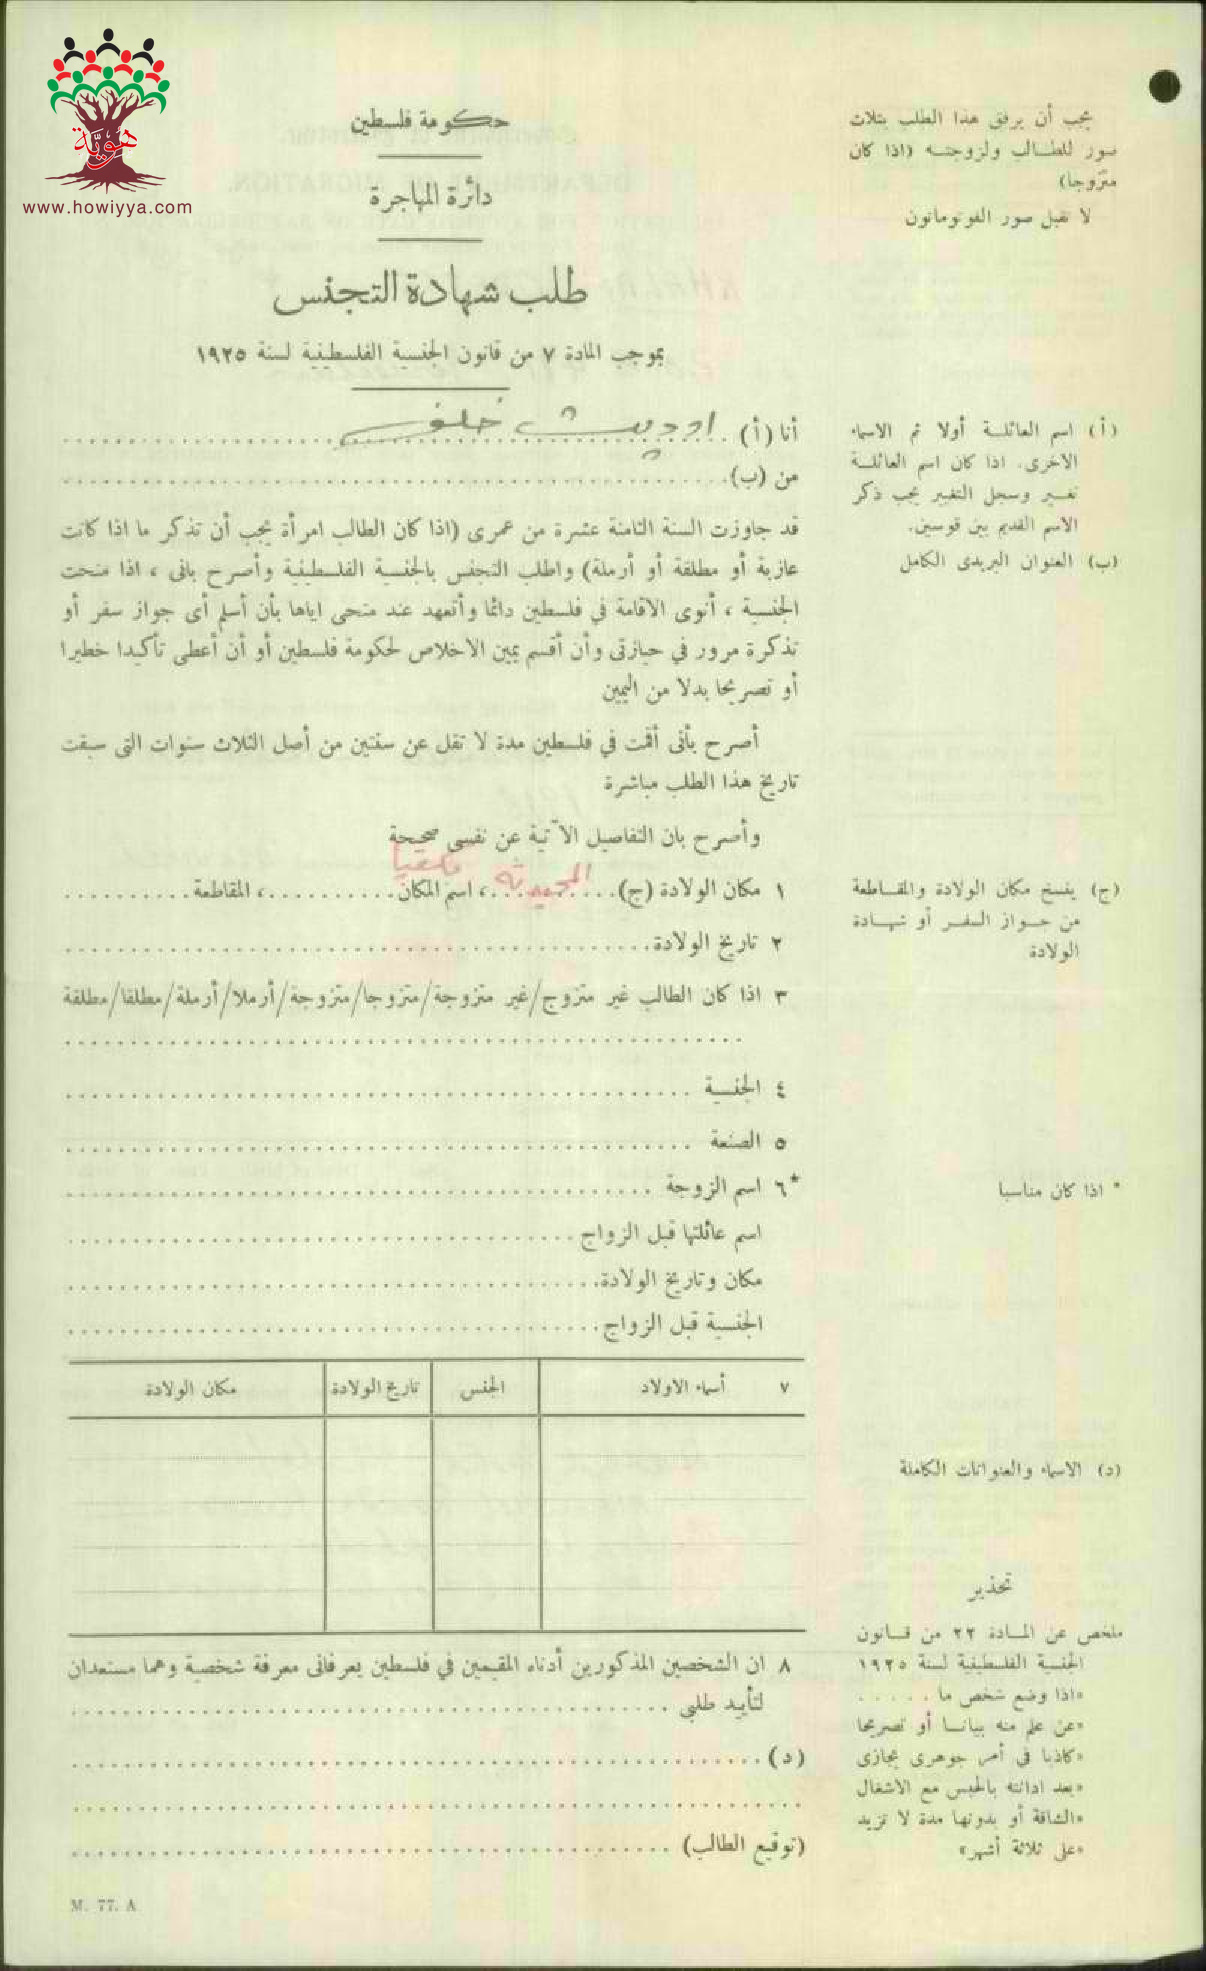 هوية
www.howiyya.com
حكومة فلسطين
دائرة المهاجرة
طلب شهادة التجنس
بموجب المادة ٧ من قانون الجنسية الفلسطينية لسنة ١٩٢٥
يجب أن يرفق هذا الطلب بثلاث
صور للطالب ولزوجته (اذا كان
متزوجا)
لا تقبل صور الفوتوماتون
أنا (أ) خلف
من (ب)
قد جاوزت السنة الثامنة عشرة من عمرى (اذا كان الطالب امرأة يجب أن تذكر ما اذا كانت
عازبة أو مطلقة أو أرملة) واطلب التجنس بالجنسية الفلسطينية وأصرح بانى ، اذا منحت
الجنسية ، أنوى الاقامة في فلسطين دائما وأتعهد عند منحى اياها بأن أسلم أى جواز سفر أو
تذكرة مرور في حيازتى وأن أقسم يمين الاخلاص لحكومة فلسطين أو أن أعطى تأكيدا خطيرا
أو تصريحا بدلا من اليمين
أصرح بأنى أقمت في فلسطين مدة لا تقل عن سنتين من أصل الثلاث سنوات التى سبقت
تاريخ هذا الطلب مباشرة
وأصرح بان التفاصيل الآتية عن نفسى صحيحة
١ مكان الولادة (ج) ، اسم المكان ، المقاطعة
٢ تاريخ الولادة
٣ اذا كان الطالب غير متزوج/غير متزوجة/متزوجا/متزوجة/أرملا/أرملة/مطلقا/مطلقة
٤ الجنسية
٥ الصنعة
*٦ اسم الزوجة
اسم عائلتها قبل الزواج
مكان وتاريخ الولادة
الجنسية قبل الزواج
٧ أسماء الاولاد الجنس تاريخ الولادة مكان الولادة
٨ ان الشخصين المذكورين أدناه المقيمين في فلسطين يعرفانى معرفة شخصية وهما مستعدان
لتأييد طلبى
(د)
(توقيع الطالب)
(أ) اسم العائلة أولا ثم الاسماء
الاخرى. اذا كان اسم العائلة
تغير وسجل التغيير يجب ذكر
الاسم القديم بين قوسين.
(ب) العنوان البريدى الكامل
(ج) ينسخ مكان الولادة والمقاطعة
من جواز السفر أو شهادة
الولادة
* اذا كان مناسبا
(د) الاسماء والعنوانات الكاملة
تحذير
ملخص عن المادة ٢٢ من قانون
الجنسية الفلسطينية لسنة ١٩٢٥
«اذا وضع شخص ما . . . . .
«عن علم منه بيانا أو تصريحا
«كاذبا فى أمر جوهرى يجازى
«بعد ادانته بالحبس مع الاشغال
«الشاقة أو بدونها مدة لا تزيد
«على ثلاثة أشهر»
M. 77. A